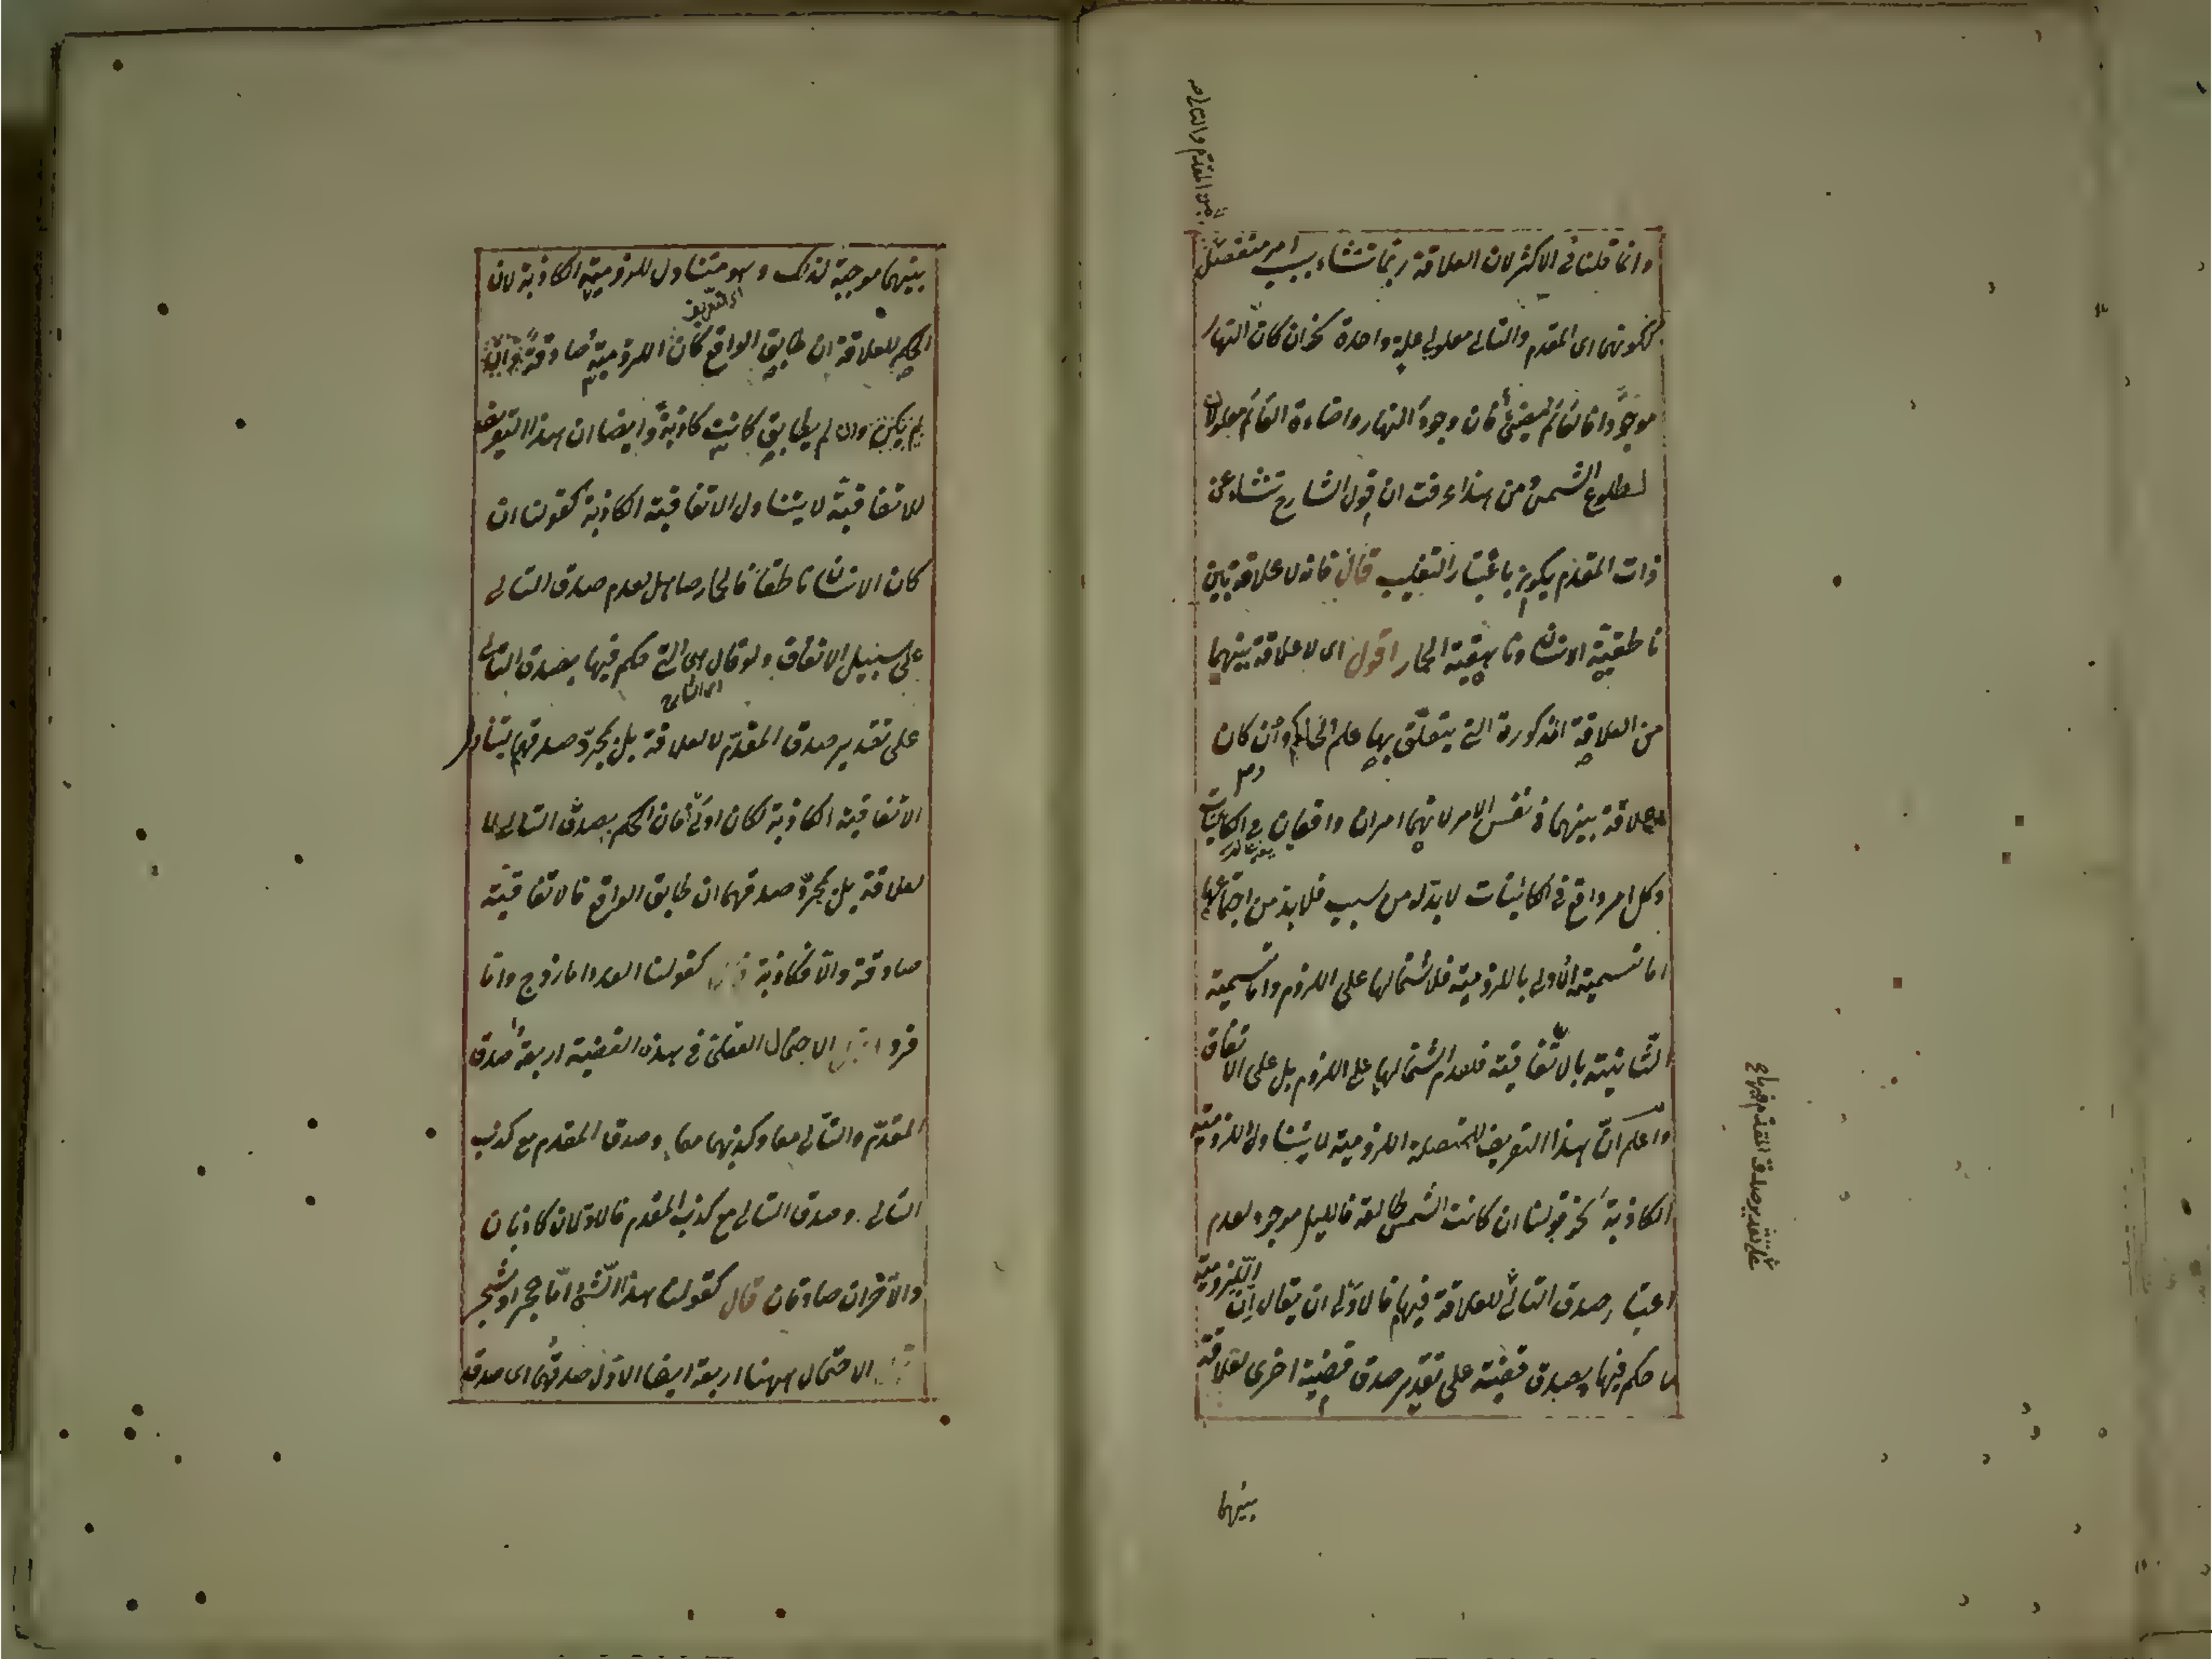 عن المقدم والتالي
وانما قلنا فى الاكثر لان العلاقة ربما تنشاء بسبب امر منفصل
لكونهما اى المقدم والتالى معلولى علة واحدة نحو ان كان النهار
موجودا فالقائم مضئ فان وجود النهار واضاءة القائم معلولان
لطلوع الشمس ومن هذا عرفت ان قول الشارح تنشاء عن
ذات المقدم يكون باعتبار التغليب قال فانه لا علاقة بين
ناطقية الانسان وناهقية الحمار اقول اى لا علاقة بينهما
من العلاقة المذكورة التى يتعلق بها علم الحاكم وان كان
علاقة بينهما فى نفس الامر لانهما امران واقعان فى الكائنات
وكل امر واقع فى الكائنات لا بد له من سبب فلا بد من اجتماعهما
اما تسمية الاولى باللزومية فلاشتمالها على اللزوم واما تسمية
الثانية بالاتفاقية فلعدم اشتمالها على اللزوم بل على الاتفاق
واعلم ان هذا التعريف للمتصلة اللزومية لا يتناول اللزومية
الكاذبة نحو قولنا ان كانت الشمس طالعة فالليل موجود لعدم
اعتبار صدق التالى للعلاقة فيها فالاولى ان يقال ان اللزومية
ما حكم فيها بصدق قضية على تقدير صدق قضية اخرى لعلاقة
على تقدير صدق المقدم فيها
بينهما
بينهما موجبة لذلك وهو متناول للزومية الكاذبة لان
اى التعريف
الحكم للعلاقة ان طابق الواقع كان اللزومية صادقة
لم يكن وان لم يطابق كانت كاذبة وايضا ان هذا التعريف
للاتفاقية لا يتناول الاتفاقية الكاذبة كقولنا ان
كان الانسان ناطقا فالحمار صاهل لعدم صدق التالى
على سبيل الاتفاق ولو قال هى التى حكم فيها بصدق التالى
اى الشارح
على تقدير صدق المقدم لا لعلاقة بل بمجرد صدقهما يتناول
الاتفاقية الكاذبة لكان اولى فان الحكم بصدق التالى لا
لعلاقة بل بمجرد صدقهما ان طابق الواقع فالاتفاقية
صادقة والا فكاذبة كقولنا العدد اما زوج واما
فرد الاحتمال العقلى فى هذه القضية اربعة صدق
المقدم والتالى معا وكذبهما معا وصدق المقدم مع كذب
التالى وصدق التالى مع كذب المقدم فالاولان كاذبان
والاخران صادقان قال كقولنا هذا الشئ اما حجر او شجر
الاحتمال ههنا اربعة ايضا الاول صدقهما اى صدق